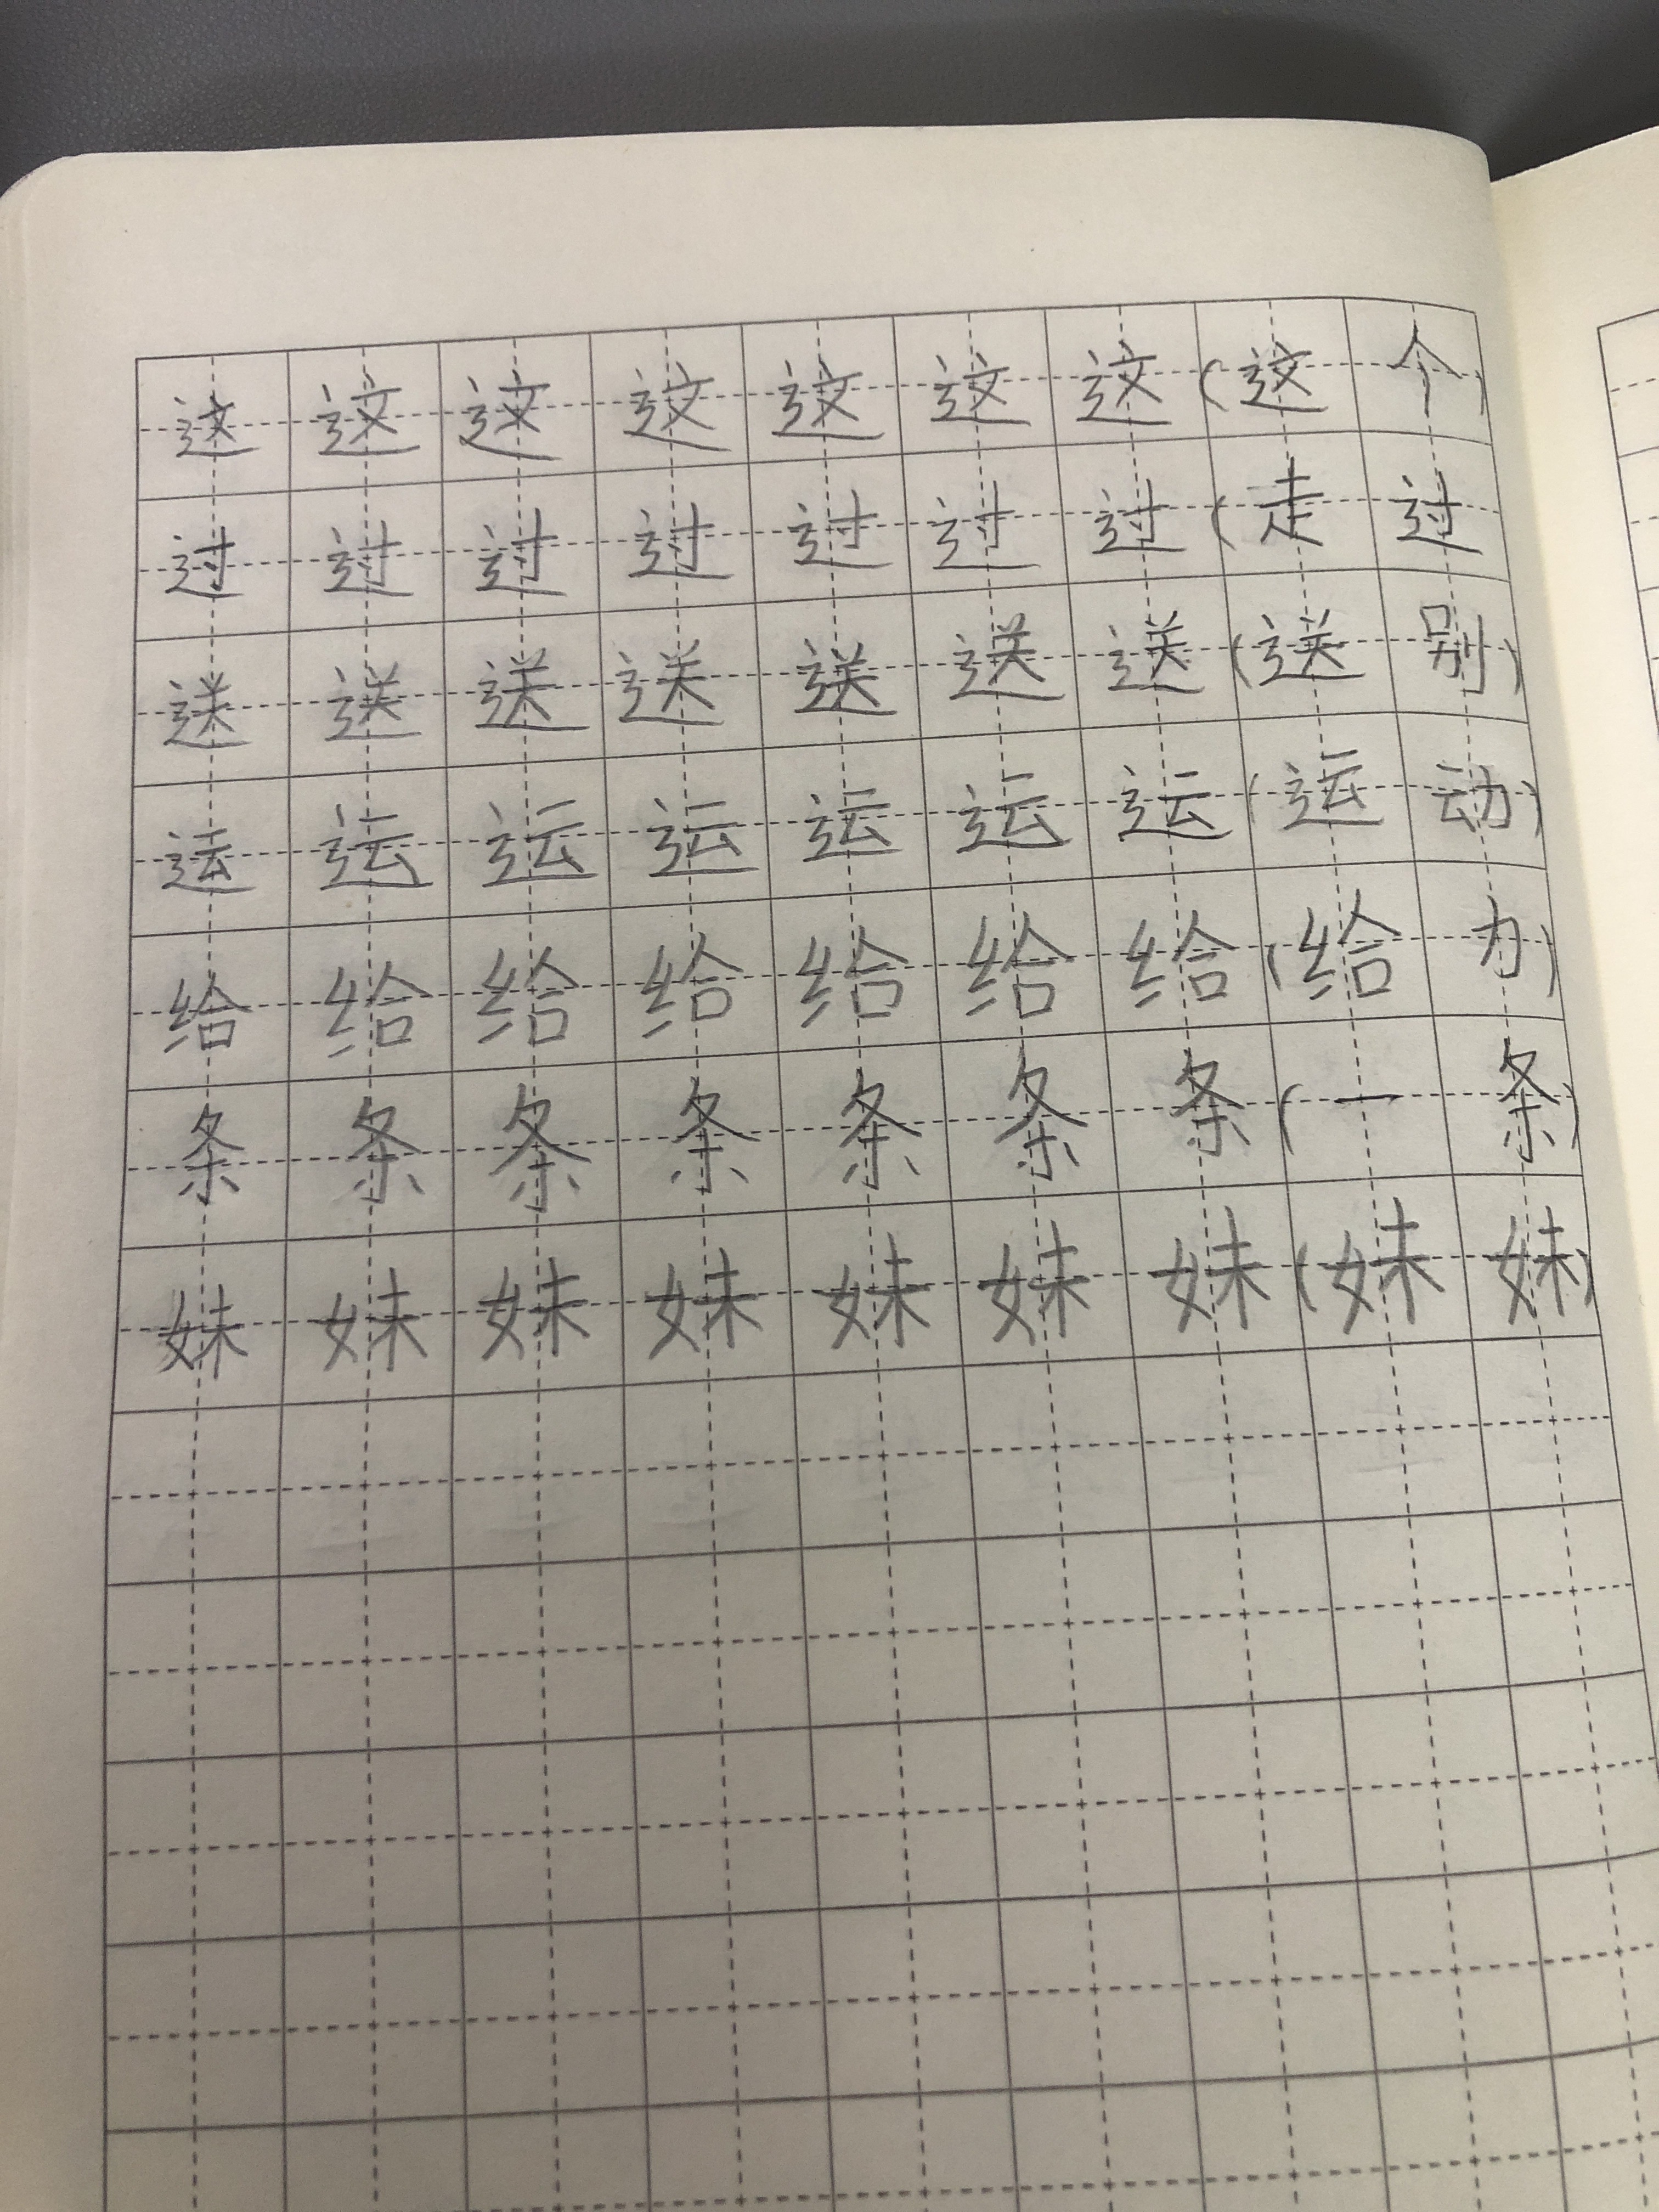 这这这这这这这(这个)
过过过过过过过(走过
送送送送送送送(送别)
运运运运运运运(运动)
给给给给给给给(给力)
条条条条条条条(一条)
妹妹妹妹妹妹妹(妹妹)